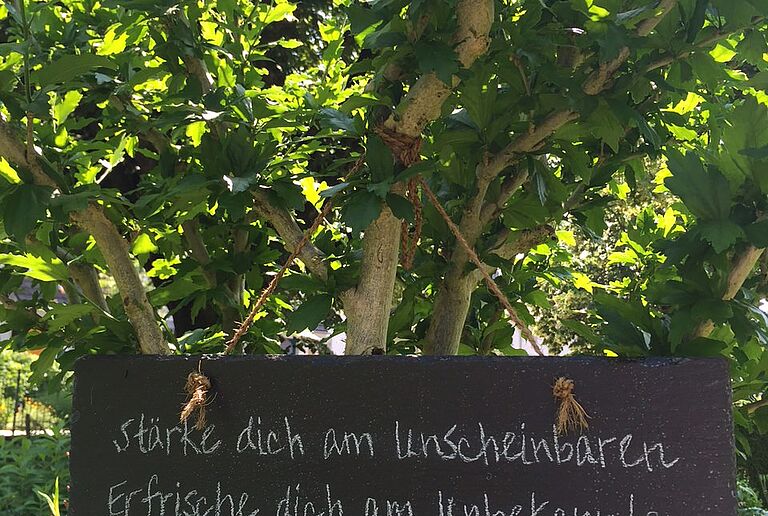 stärke dich am Unscheinbaren
Erfrische dich am